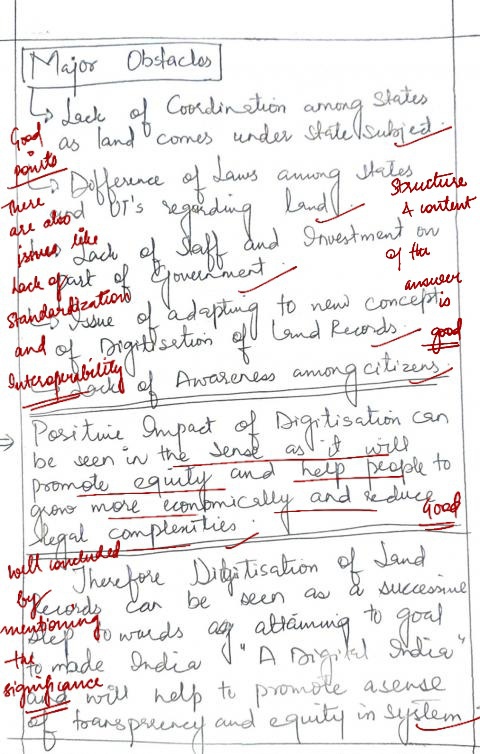 Major Obstacles
↳ Lack of Coordination among States
as land comes under State Subject.
↳ Difference of Laws among States
and UT's regarding land
↳ Lack of Staff and Investment on
part of Government.
↳ Issue of adapting to new concept
of Digitisation of Land Records.
↳ Lack of Awareness among citizens.
Good
points
There
are also
issues like
Lack of
Standardization
and
Interoperability
Structure
& content
of the
answer
is
good
→ Positive Impact of Digitisation can
be seen in the sense as it will
promote equity and help people to
grow more economically and reduce
legal complexities.
Good
Therefore Digitisation of Land
Records can be seen as a successive
step towards as attaining to goal
to made India "A Digital India"
and will help to promote a sense
of transparency and equity in system
well concluded
by
mentioning
the
significance